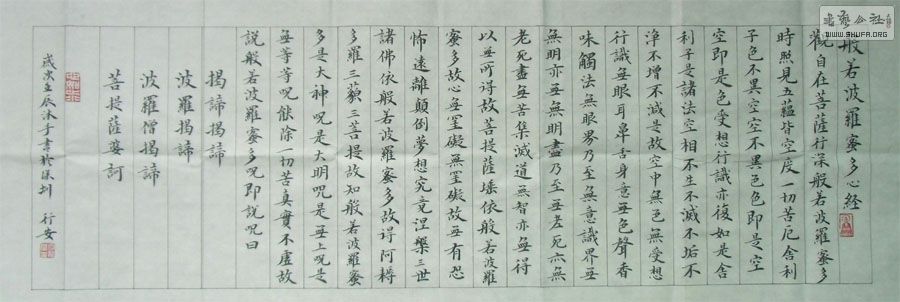 般若波羅蜜多心经
觀自在菩薩行深般若波羅蜜多
時照見五蘊皆空度一切苦厄舍利
子色不異空空不異色色即是空
空即是色受想行識亦復如是舍
利子是諸法空相不生不滅不垢不
淨不增不減是故空中無色無受想
行識無眼耳鼻舌身意無色聲香
味觸法無眼界乃至無意識界無
無明亦無無明盡乃至無老死亦無
老死盡無苦集滅道無智亦無得
以無所得故菩提薩埵依般若波羅
蜜多故心無罣礙無罣礙故無有恐
怖遠離顛倒夢想究竟涅槃三世
諸佛依般若波羅蜜多故得阿耨
多羅三藐三菩提故知般若波羅蜜
多是大神咒是大明咒是無上咒是
無等等咒能除一切苦真實不虛故
說般若波羅蜜多咒即說咒曰
揭諦揭諦
波羅揭諦
波羅僧揭諦
菩提薩婆訶
歲次壬辰沐手書於深圳 行安
WWW.SHUFA.ORG